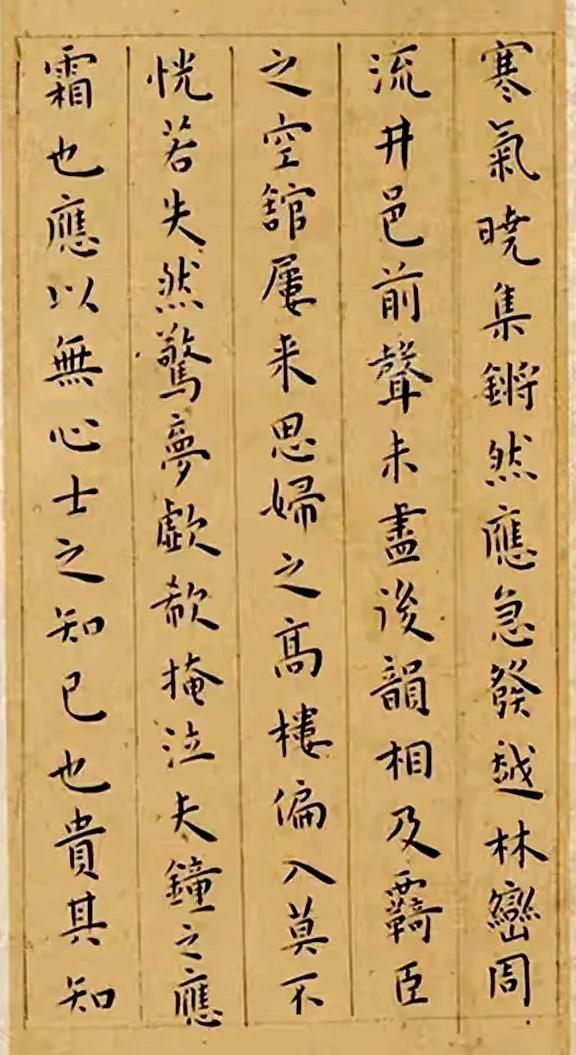 寒氣曉集鏘然應急發越林巒周
流井邑前聲未盡後韻相及羇臣
之空館屢来思婦之髙樓偏入莫不
恍若失然驚夢歔欷掩泣夫鐘之應
霜也應以無心士之知已也貴其知